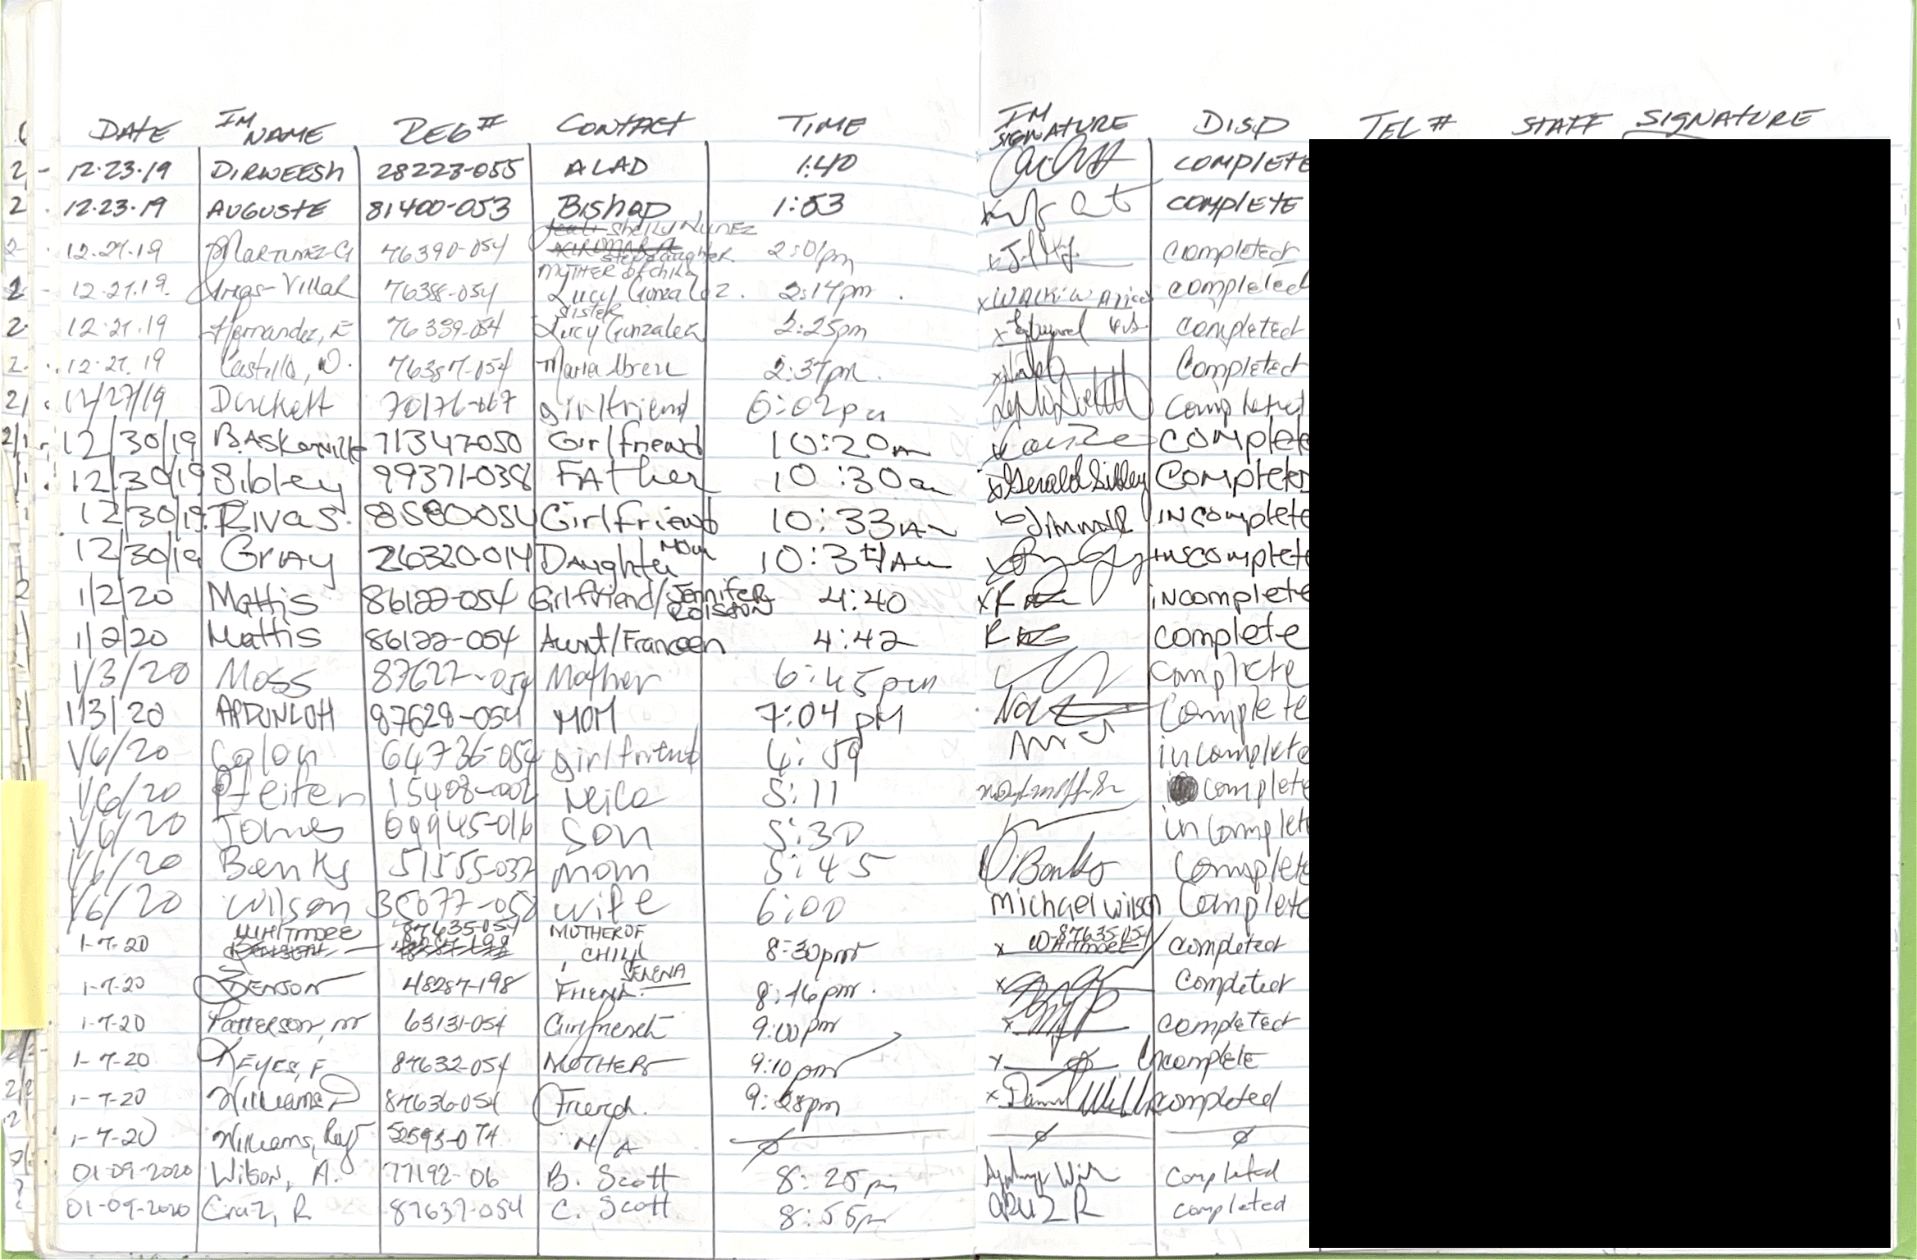 DATE IM NAME REG# CONTACT TIME IM SIGNATURE DISP TEL # STAFF SIGNATURE
12-23-19 DIRWEESH 28223-055 ALAD 1:40 COMPLETE
12-23-19 AUGUSTE 81400-053 Bishop 1:53 COMPLETE
12.27.19 Martinez-G 76390-054 Shelly Nunez stepdaughter 2:01pm completed
12.27.19. Arias-Villar 76388-054 MOTHER of child Lucy Gonzalez. 2:14pm completed
12.27.19 Hernandez, E 76389-054 sister Lucy Gonzalez 2:25pm completed
12.27.19 Castillo, D. 76387-054 Maria Abreu 2:37pm. Completed
12/27/19 Duckett 70176-067 girlfriend 6:02pm completed
12/30/19 BASKerville 71347-050 Girlfriend 10:20am COMPLETE
12/30/19 Sibley 99371-038 FAther 10:30am x Gerald Sibley COMPLETED
12/30/19 RIVAS. Girlfriend 10:33AM INcomplete
12/30/19 GrAy 26320-014 DAughter Mom AM INcomplete
1/2/20 Mattis 86122-054 Girlfriend/Jennifer ROLSTON 4:40 incomplete
1/2/20 Mattis 86122-054 Aunt/Franceen 4:42 complete
1/3/20 Moss 87627-054 Mother 6:45pm complete
1/3/20 87628-054 MOM 7:04 PM Complete
1/6/20 Colon 64736-054 girlfriend 4:59 incomplete
1/6/20 Pfeifer 15408-002 5:11 complete
1/6/20 Jones 69945-016 son 5:30 incomplete
1/6/20 Banks 51555-037 mom 5:45 D. Banks Complete
1/6/20 wilson 35077-058 wife 6:00 michael wilson Complete
1-7-20 WHITMORE 87635-054 MOTHER OF CHILD 8:30pm x WHITMORE completed
1-7-20 BENSON 48287-198 FRIEND. SERENA 8:46pm. Completed
1-7-20 Patterson, 63131-054 Girlfriend 9:00pm completed
1-7-20 KEYES, F 87632-054 MOTHER 9:10pm Incomplete
1-7-20 Williams, D 87636-054 Friend. completed
1-7-20 Williams, Ray 52593-074 N/A Ø Ø Ø
01-09-2020 Wilson, A. 77192-06 B. Scott 8:25pm completed
01-09-2020 Cruz, R 87637-054 C. Scott 8:55pm CRUZ R completed